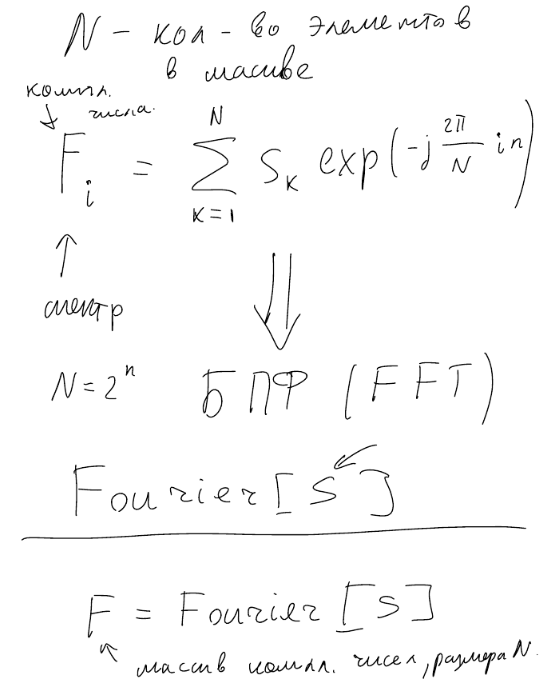 N - кол-во элементов
в масиве
компл.
числа.
F_i = \sum_{k=1}^{N} s_k exp(-j \frac{2π}{N} in)
спектр
N = 2^n БПФ (FFT)
Fourier [s]
F = Fourier [s]
массив компл. чисел, размера N.